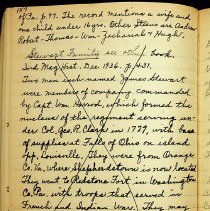 of Pa. p. 57. The record mentions a wife and
one child under 16 yrs. Other Stewarts are Andrew
Robert - Thomas - Wm - Zachariah & Hugh.
Stewart Family see Ohio Book.
Ind Mag. Hist. Dec. 1936. p. 431.
Two men each named James Stewart
were members of company commanded
by Capt. Wm Harrod, which formed the
nucleus of the regiment serving un-
der Col. Geo. R. Clark in 1779, with base
of supplies at Falls of Ohio on island
opp. Louisville. They were from Orange
Co. Va, where Shepherdstown is now located.
They went to Redstone Fort in Washington
Co. Pa. with troops that served in
French and Indian War. They may